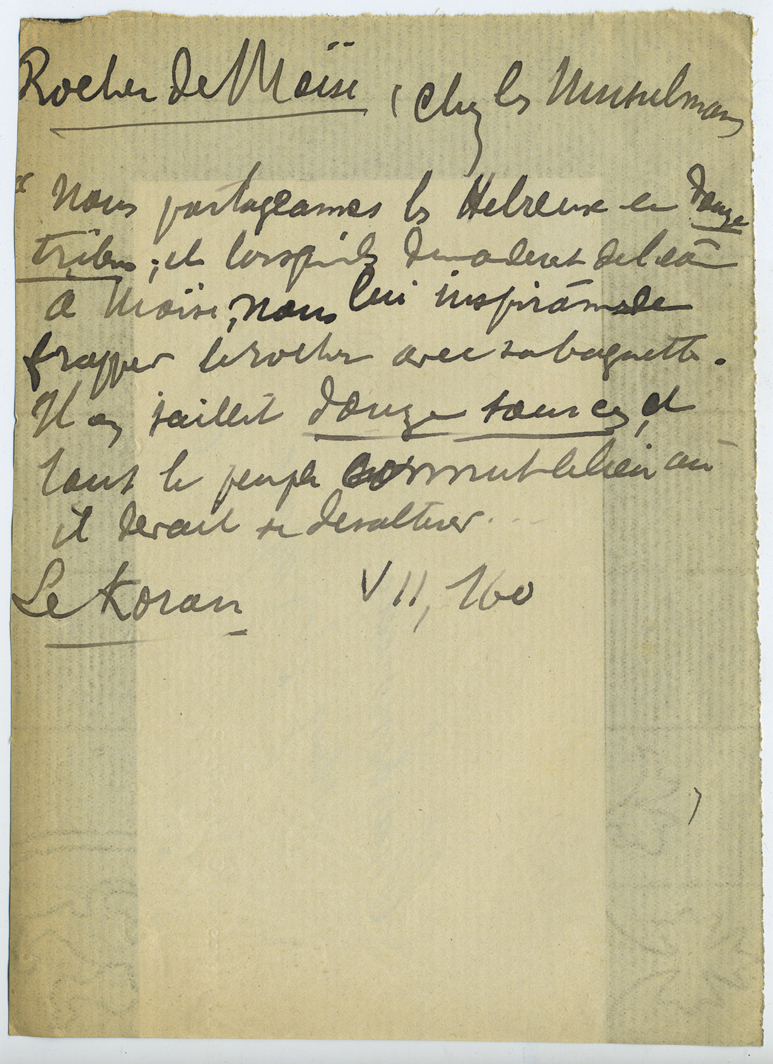 Rocher de Moïse, chez les Musulmans
" Nous partageames les Hebreux en douze
tribus ; et lorsqu'ils demanderent de l'eau
à Moïse, nous lui inspirâmes de
frapper le rocher avec sa baguette.
Il en jaillit douze sources, et
tout le peuple connut le lieu où
il devait se desalterer...
Le Koran VII, 160